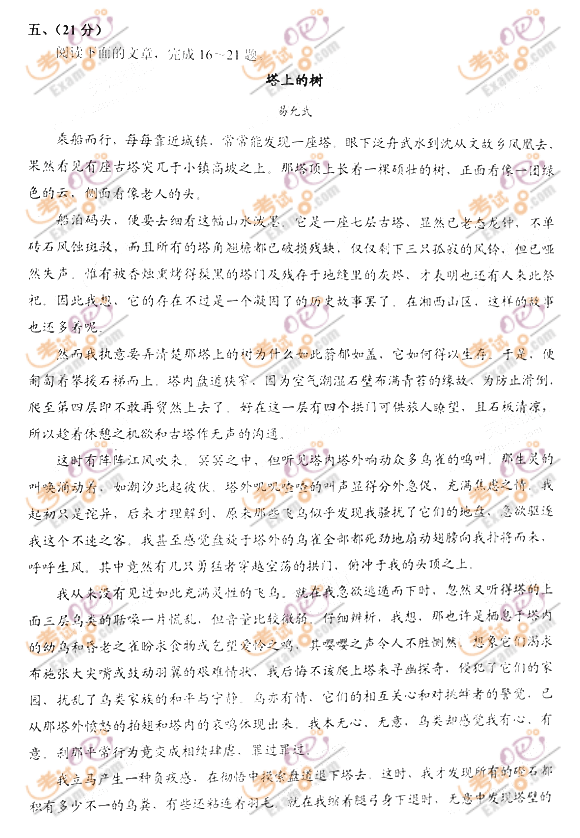 五、(21分)
阅读下面的文章，完成16～21题
塔上的树
易允武
乘船而行，每每靠近城镇，常常能发现一座塔。眼下泛舟武水到沈从文故乡凤凰去，
果然看见有座古塔突兀于小镇高坡之上。那塔顶上长着一棵硕壮的树，正面看像一团绿
色的云，侧面看像老人的头。
船泊码头，便要去细看这幅山水泼墨。它是一座七层古塔，显然已老态龙钟，不单
砖石风蚀斑驳，而且所有的塔角翘檐都已破损残缺，仅仅剩下三只孤寂的风铃，但已哑
然失声。惟有被香烛熏烤得操黑的塔门及残存于地缝里的灰烬，才表明也还有人来此祭
祀。因此我想，它的存在不过是一个凝固了的历史故事罢了。在湘西山区，这样的故事
也还多着呢。
然而我执意要弄清楚那塔上的树为什么如此蓊郁如盖，它如何得以生存。于是，便
匍匐着攀援石梯而上。塔内盘道狭窄，因为空气潮湿石壁布满青苔的缘故，为防止滑倒，
爬至第四层即不敢再贸然上去了。好在这一层有四个拱门可供旅人瞭望，且石板清凉，
所以趁着休憩之机欲和古塔作无声的沟通。
这时有阵阵江风吹来。冥冥之中，但听见塔内塔外响动众多鸟雀的鸣叫。那生灵的
叫唤涌动着，如潮汐此起彼伏。塔外叽叽喳喳的叫声显得分外急促，充满焦虑之情。我
起初只是诧异，后来才理解到，原来那些飞鸟似乎发现我骚扰了它们的地盘，急欲驱逐
我这个不速之客。我甚至感觉盘旋于塔外的鸟雀全部都死劲地扇动翅膀向我扑将而来，
呼呼生风。其中竟然有几只勇猛者穿越空荡的拱门，俯冲于我的头顶之上。
我从来没有见过如此充满灵性的飞鸟。就在我急欲逃遁而下时，忽然又听得塔的上
面三层鸟类的聒噪一片慌乱，但音量比较微弱。仔细辨析，我想，那也许是栖息于塔内
的幼鸟和昏老之雀盼求食物或乞望爱怜之鸣，其嘤嘤之声令人不胜恻然。想象它们渴求
布施张大尖嘴或鼓动羽翼的艰难情状，我后悔不该爬上塔来寻幽探奇，侵犯了它们的家
园，扰乱了鸟类家族的和平与宁静。鸟亦有情，它们的相互关心和对挑衅者的警觉，已
从那塔外愤怒的拍翅和塔内的哀鸣体现出来。我本无心，无意，鸟类却感觉我有心，有
意。刹那平常行为竟变成相续肆虐，罪过罪过。
我立马产生一种负疚感，在彻悟中摸索盘道退下塔去。这时，我才发现所有的磴石都
积有多少不一的鸟粪，有些还粘连着羽毛。就在我缩着腿弓身下退时，无意中发现塔壁的